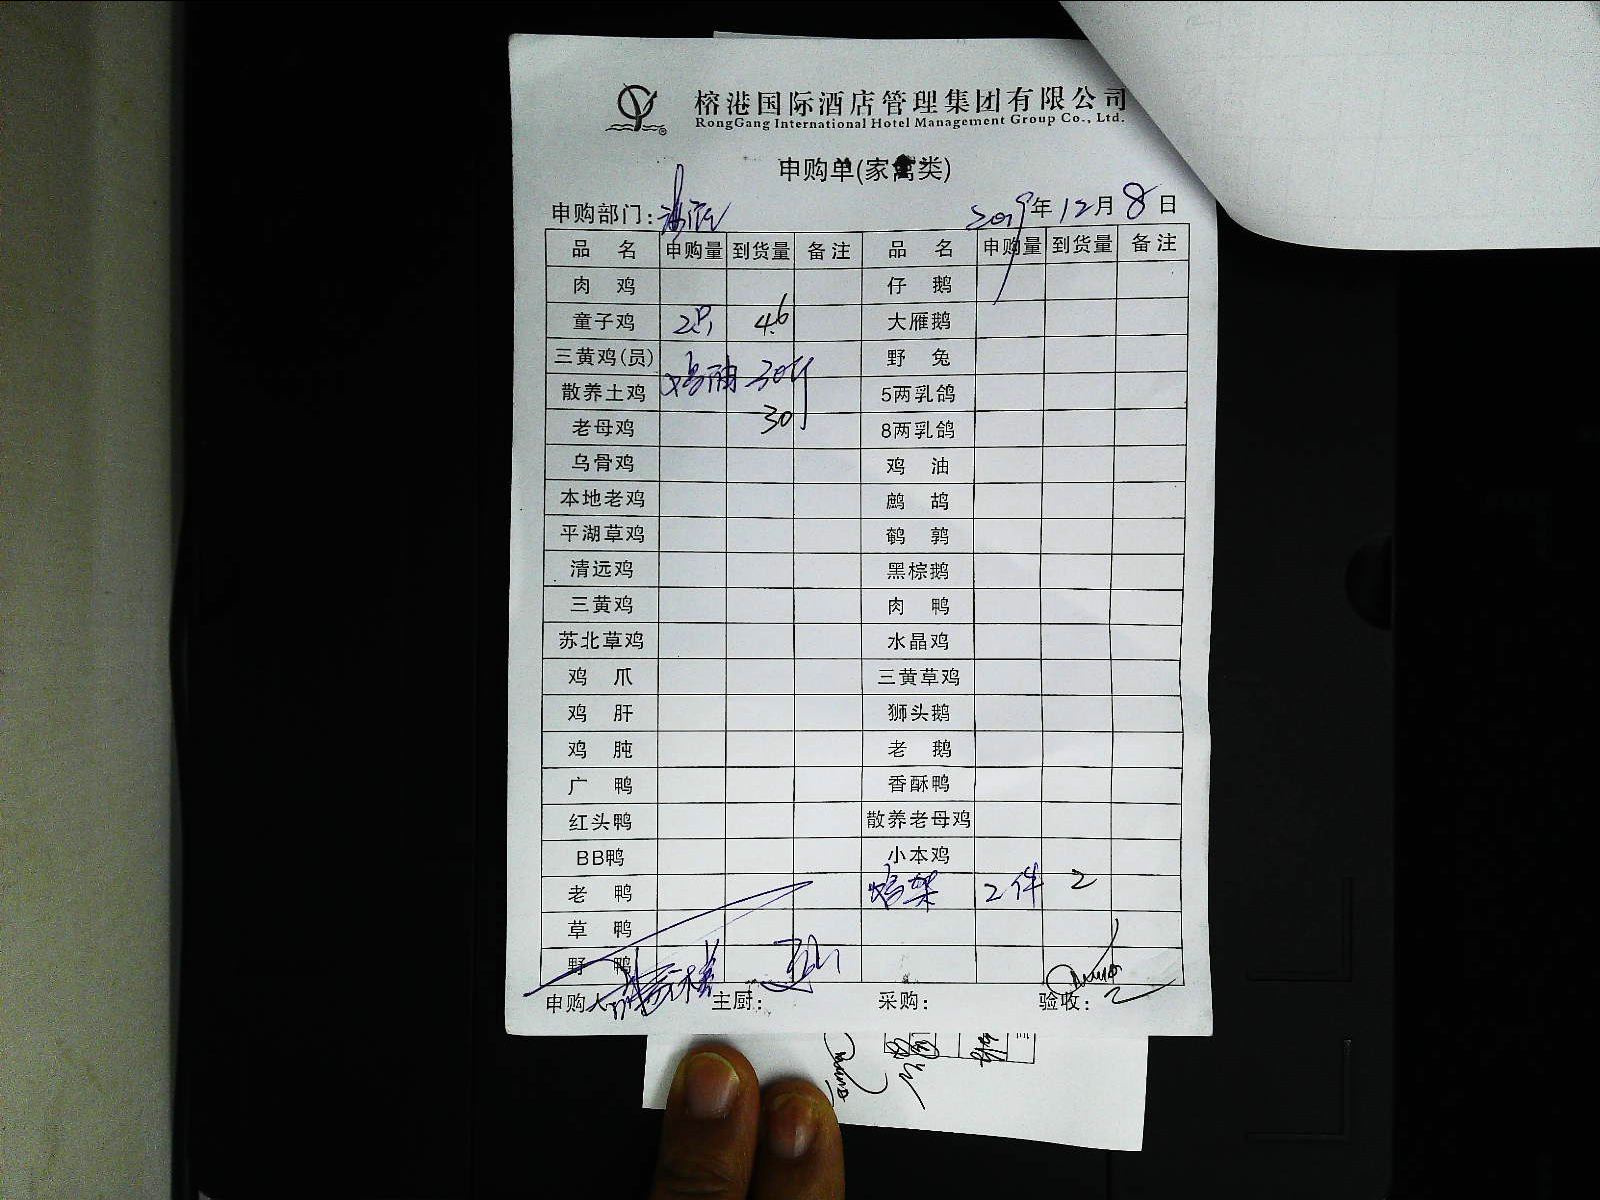 榕港国际酒店管理集团有限公司
RongGang International Hotel Management Group Co., Ltd.
申购单(家禽类)
申购部门: 2019年12月8日
品名 申购量 到货量 备注 品名 申购量 到货量 备注
肉鸡 仔鹅
童子鸡 2只 4.6 大雁鹅
三黄鸡(员) 野兔
鸡 30个
散养土鸡 5两乳鸽
老母鸡 30 8两乳鸽
乌骨鸡 鸡油
本地老鸡 鹧鸪
平湖草鸡 鹌鹑
清远鸡 黑棕鹅
三黄鸡 肉鸭
苏北草鸡 水晶鸡
鸡爪 三黄草鸡
鸡肝 狮头鹅
鸡肫 老鹅
广鸭 香酥鸭
红头鸭 散养老母鸡
BB鸭 小本鸡
老鸭 鸡架 2件 2
草鸭
野鸭
申购人 主厨: 采购: 验收: